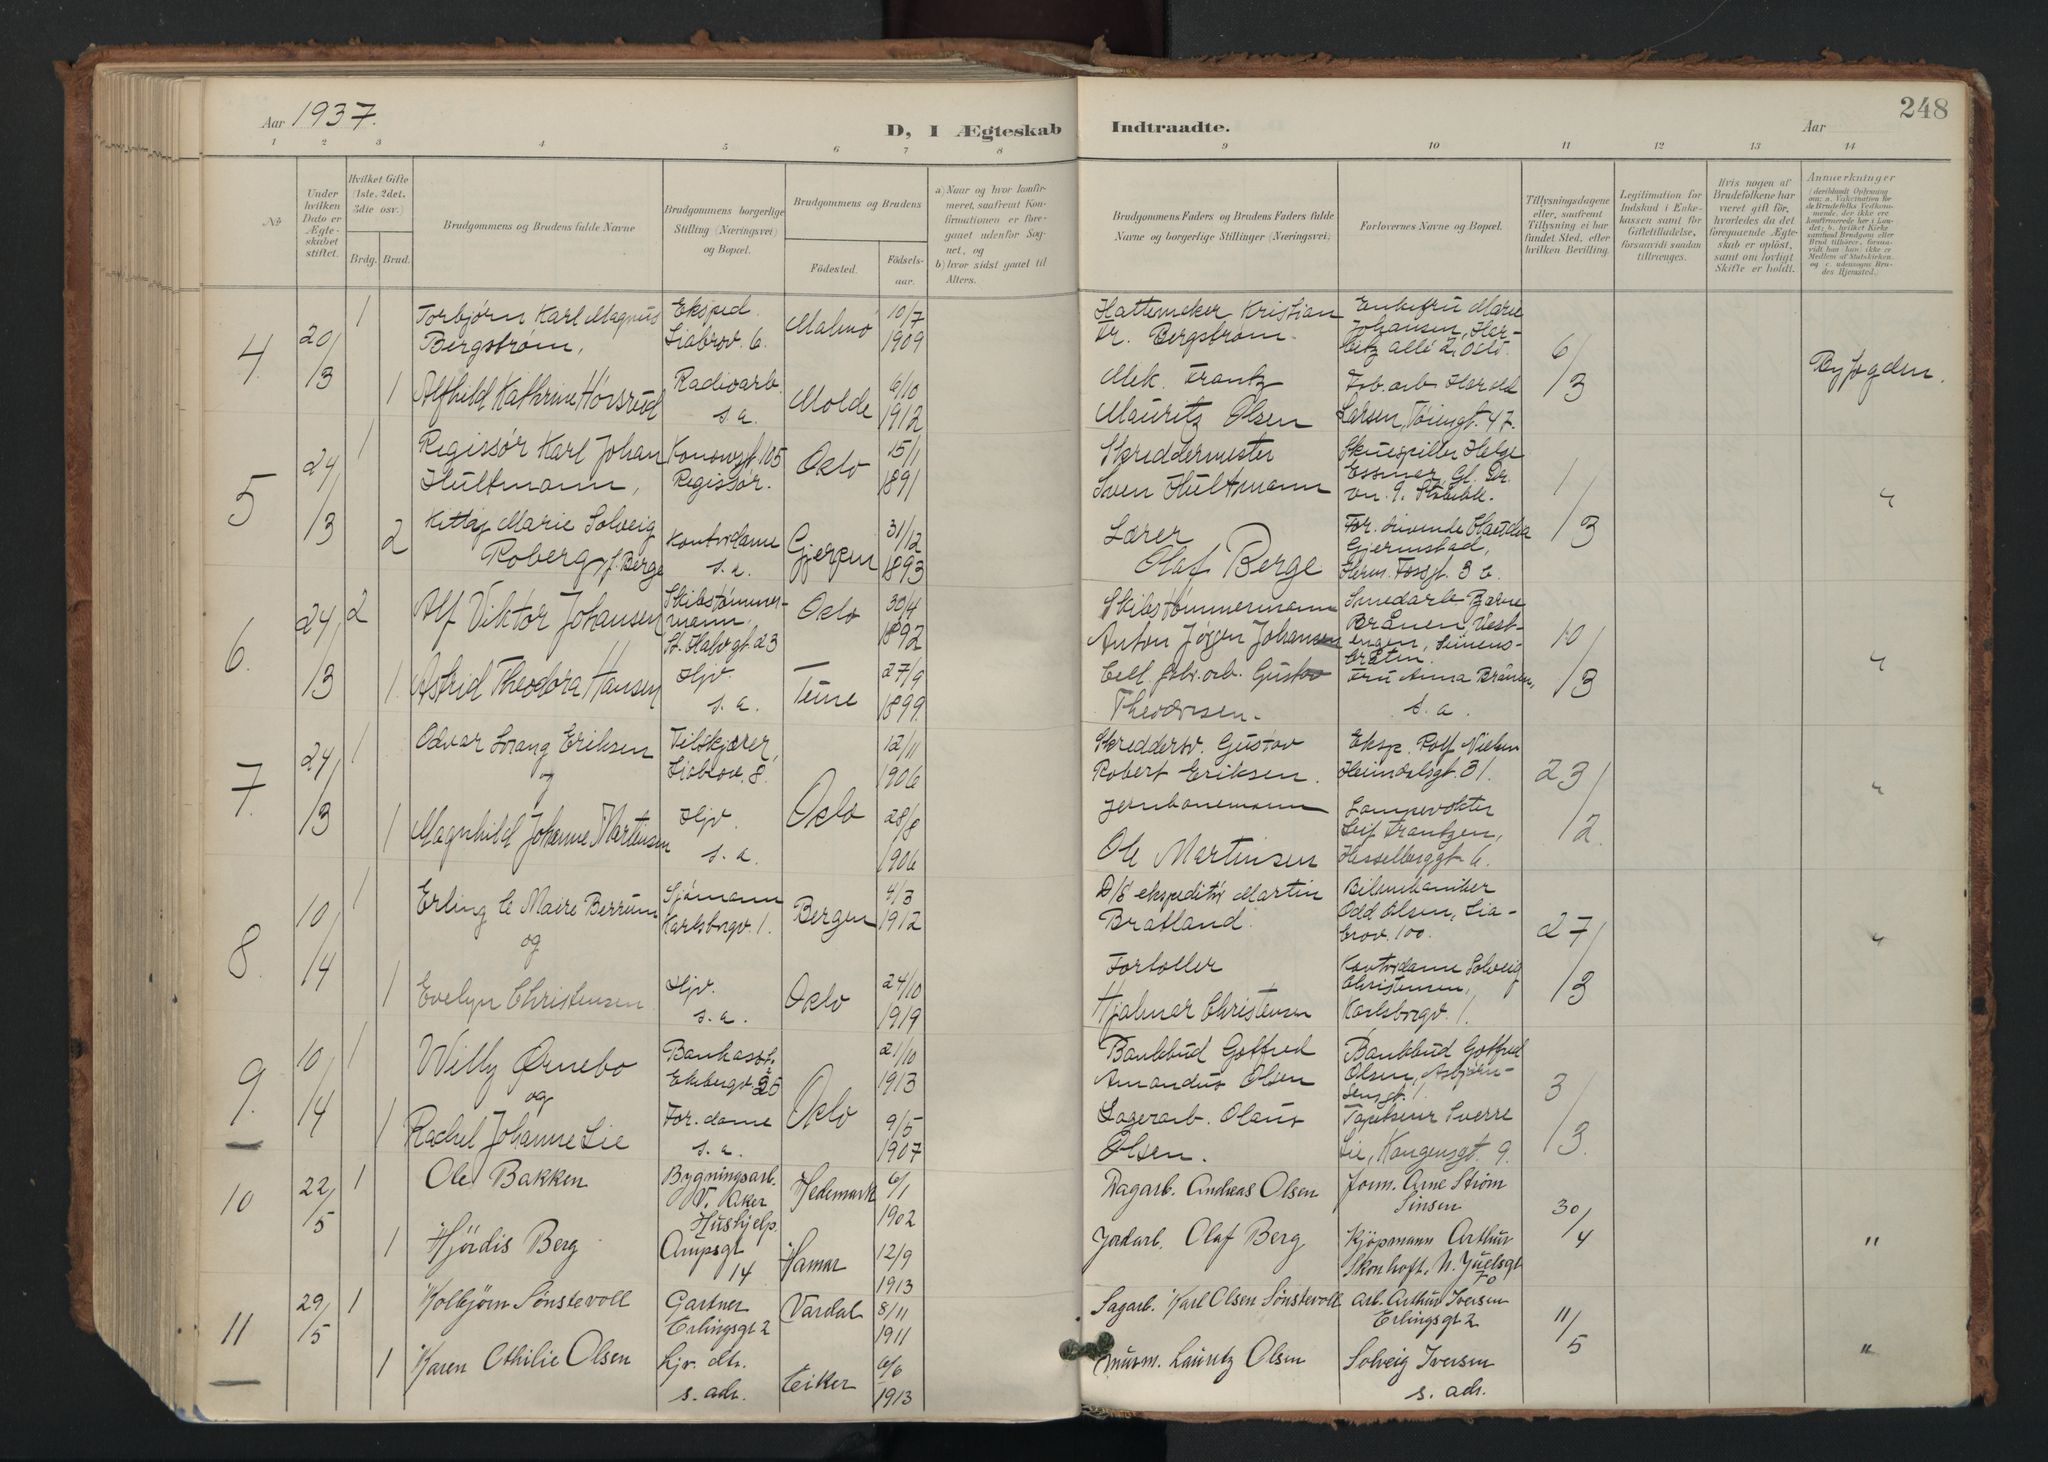 Aar 1937.
D, I Ægteskab Indtraadte.
Aar
248
1 2 3 4 5 6 7 8 9 10 11 12 13 14
No
Under hvilken Dato er Ægteskabet stiftet.
Hvilket Gifte (1ste, 2det, 3die osv.)
Brdg. Brud.
Brudgommens og Brudens fulde Navne
Brudgommens borgerlige Stilling (Næringsvei) og Bopæl.
Brudgommens og Brudens
Fødested. Fødselsaar.
a) Naar og hvor konfirmeret, saafremt Konfirmationen er foregaaet udenfor Sognet, og
b) hvor sidst gaaet til Alters.
Brudgommens Faders og Brudens Faders fulde Navne og borgerlige Stillinger (Næringsvei)
Forlovernes Navne og Bopæl.
Tillysningsdagene eller, saafremt Tillysning ei har fundet Sted, efter hvilken Bevilling.
Legitimation for Indskud i Enkekassen samt for Giftetilladelse, forsaavidt saadan tiltrænges.
Hvis nogen af Brudefolkene har været gift før, hvorledes da det foregaaende Ægteskab er opløst, samt om lovligt Skifte er holdt.
Anmærkninger
4. 20/3 1 Torbjørn Karl Magnus Bergstrøm, Eksped. Liabrov. 6. Malmø 10/7 1909 Hattemaker Kristian Fr. Bergstrøm. Enkefru Marie Johansen, Harbitz allé 2, Oslo. 6/3 Byfogden.
1 Alfhild Kathrine Horsrud Radioarb. s. a. Molde 6/10 1912 Mek. Frantz Mauritz Olsen Fab. arb Harald Larsen, Tøiengt. 47.
5 24/3 1 Regissør Karl Johan Hultmann, Konowsgt 105 Regissør. Oslo 15/1 1891 Skreddermester Sven Hultmann Skuespiller Helge Essmar, Gl. Dr. vn. 9. Stabekk. 1/3 "
2 Kitty Marie Solveig Roberg, f. Berge Kontordame s. a. Gjerpen 31/12 1893 Lærer Olaf Berge Gjermstad, Herm. Fossgt. 3 b.
6. 24/3 2 Alf Viktor Johansen Skibstømmermann, St. Halv gt. 23 Oslo 30/4 1892 Skibstømmermann Anton Jørgen Johansen Smedarb Bjarne Brånen, Vestengen, Simensbråten. 10/3 "
1 Astrid Theodora Hansen Hjv. s. a. 27/9 1899. Cell. fabr. arb. Gustav Theodorsen. Fru Anna Brånen, s. a.
7. 24/3 1 Odvar Srang Eriksen og Tilskjærer, Liabrov. 8. Oslo 12/11 1906 Skreddersv. Gustav Robert Eriksen. Eksp. Rolf Nielsen Heimdalsgt 31. 23/2 "
1 Magnhild Johanne Martinsen Hjv. s. a. 28/8 1906 Jernbanemann Ole Martinsen Lampevokter Leif Frantzen, Hesselberggt. 6.
8. 10/4 1 Erling C Maere Berrum og Sjømann Karlsborgv. 1. Bergen 4/3 1912 D/S ekspeditør Martin Bratland. Bilmekaniker Odd Olsen, Liabrov. 100. 27/3 "
1 Evelyn Christensen Hjv. s. a. Oslo 24/10 1919 Fortoller Hjalmar Christensen Kontordame Solveig Christensen, Karlsborgv. 1.
9. 10/4 1 Willy Ørnebo og Bankasst. Ekebergv. 225 Oslo 21/10 1913 Bankbud Gotfred Amandus Olsen Bankbud Gotfred Olsen, Asbjørnsensgt. 1. 3/3
1 Rachel Johanne Lie For. dame s. a. 9/5 1907 Lagerarb. Olaus Olsen. Tapetserer Sverre Lie, Kongensgt. 9.
10 22/5 1 Ole Bakken Bygningsarb. V. Aker Hedemark 6/1 1902 Dagarb. Andreas Olsen Form. Arne Strøm Sinsen 30/4 "
1 Hjørdis Berg Hushjelp. Ampsgt 14 Hamar 12/9 1913 Jordarb. Olaf Berg Kjøpmann Arthur Skonhoft, N. Juelsgt 70
11 29/5 1 Kolbjørn Sønstevoll Gartner Erlingsgt 2 Vardal 8/11 1911 Sagarb. Karl Olsen Sønstevoll Arb. Arthur Iversen Erlingsgt 2 11/5 "
1 Karen Othilie Olsen Hjv. dtr. s. adr. Eiker 6/6 1913 murm. Lauritz Olsen Solveig Iversen s. adr.